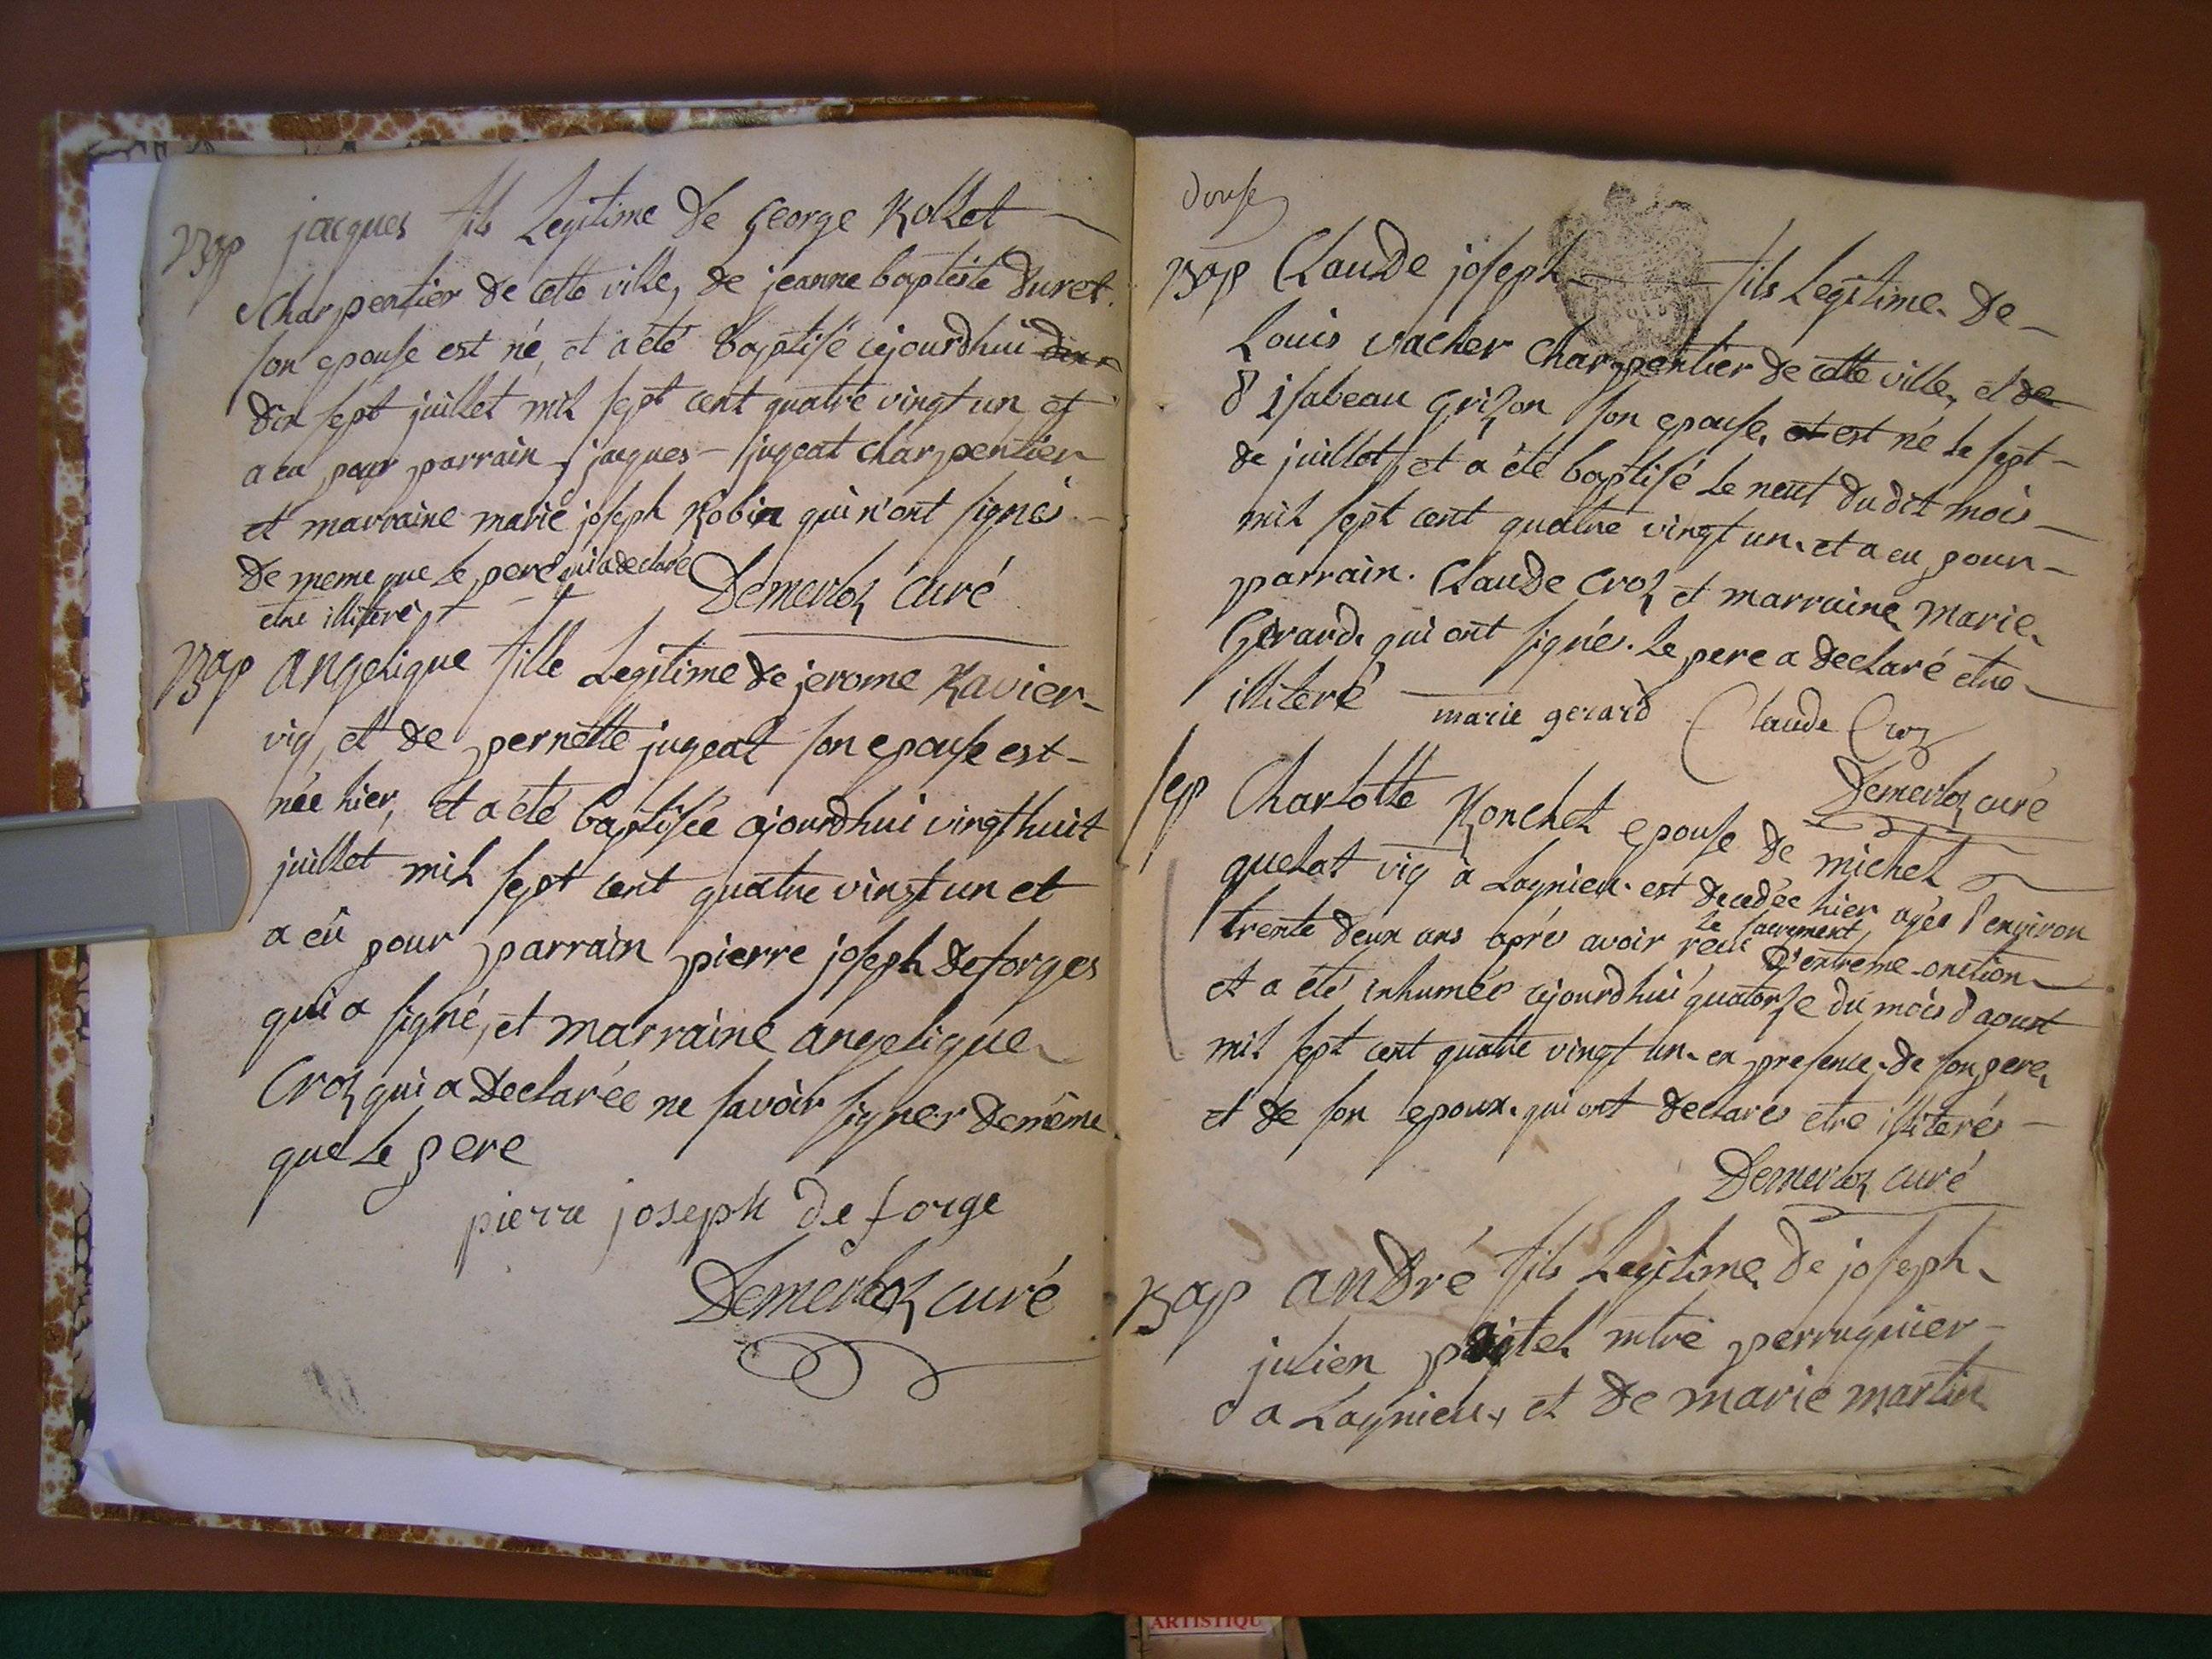 Bap jacques fils Legitime de george Rollet
Charpentier de cette ville, de jeanne baptiste Duret.
son epouse est né, et a été baptisé cejourdhui dix
dix sept juillet mil sept cent quatre vingt un et
a eu pour parrain jacques jugeat charpentier
et marraine marie joseph Robin qui n'ont signés
de meme que le pere qui a declaré
etre illiteré Demerloz curé
Bap angelique fille Legitime de jerome Ravier
vig, et de pernette jugeat son epouse est
née hier, et a été baptisée cejourdhui vingt huit
juillet mil sept cent quatre vingt un et
a eû pour parrain pierre joseph deforges
qui a signé, et marraine angelique
Croz qui a declarée ne savoir signer de même
que le pere
pierre joseph de forge
Demerloz curé
douse
Bap Claude joseph fils Legitime. de
Louis vacher Charpentier de cette ville, et de
d'isabeau Grison son epouse, et est né le sept
de juillet, et a été baptisé le neuf dudit mois
mil sept cent quatre vingt un. et a eu pour
parrain. Claude Croz et marraine marie
Gerard. qui ont signés. le pere a declaré etre
illiteré marie gerard Claude Croz
Demerloz curé
sep Charlotte Ronchet epouse de michel
quelat vig à Lagnieu. est decedée hier agée d'environ
trente deux ans aprés avoir reçu le sacrement d'extreme-onction
et a été inhumée cejourdhui quatorze du mois d'aoust
mil sept cent quatre vingt un. en presence. de son pere
et de son epoux. qui ont declarés etre illiterés
Demerloz curé
Bap andré fils Legitime de joseph
julien mtre perruquier
a Lagnieu, et de marie martin
ARTISTIQU